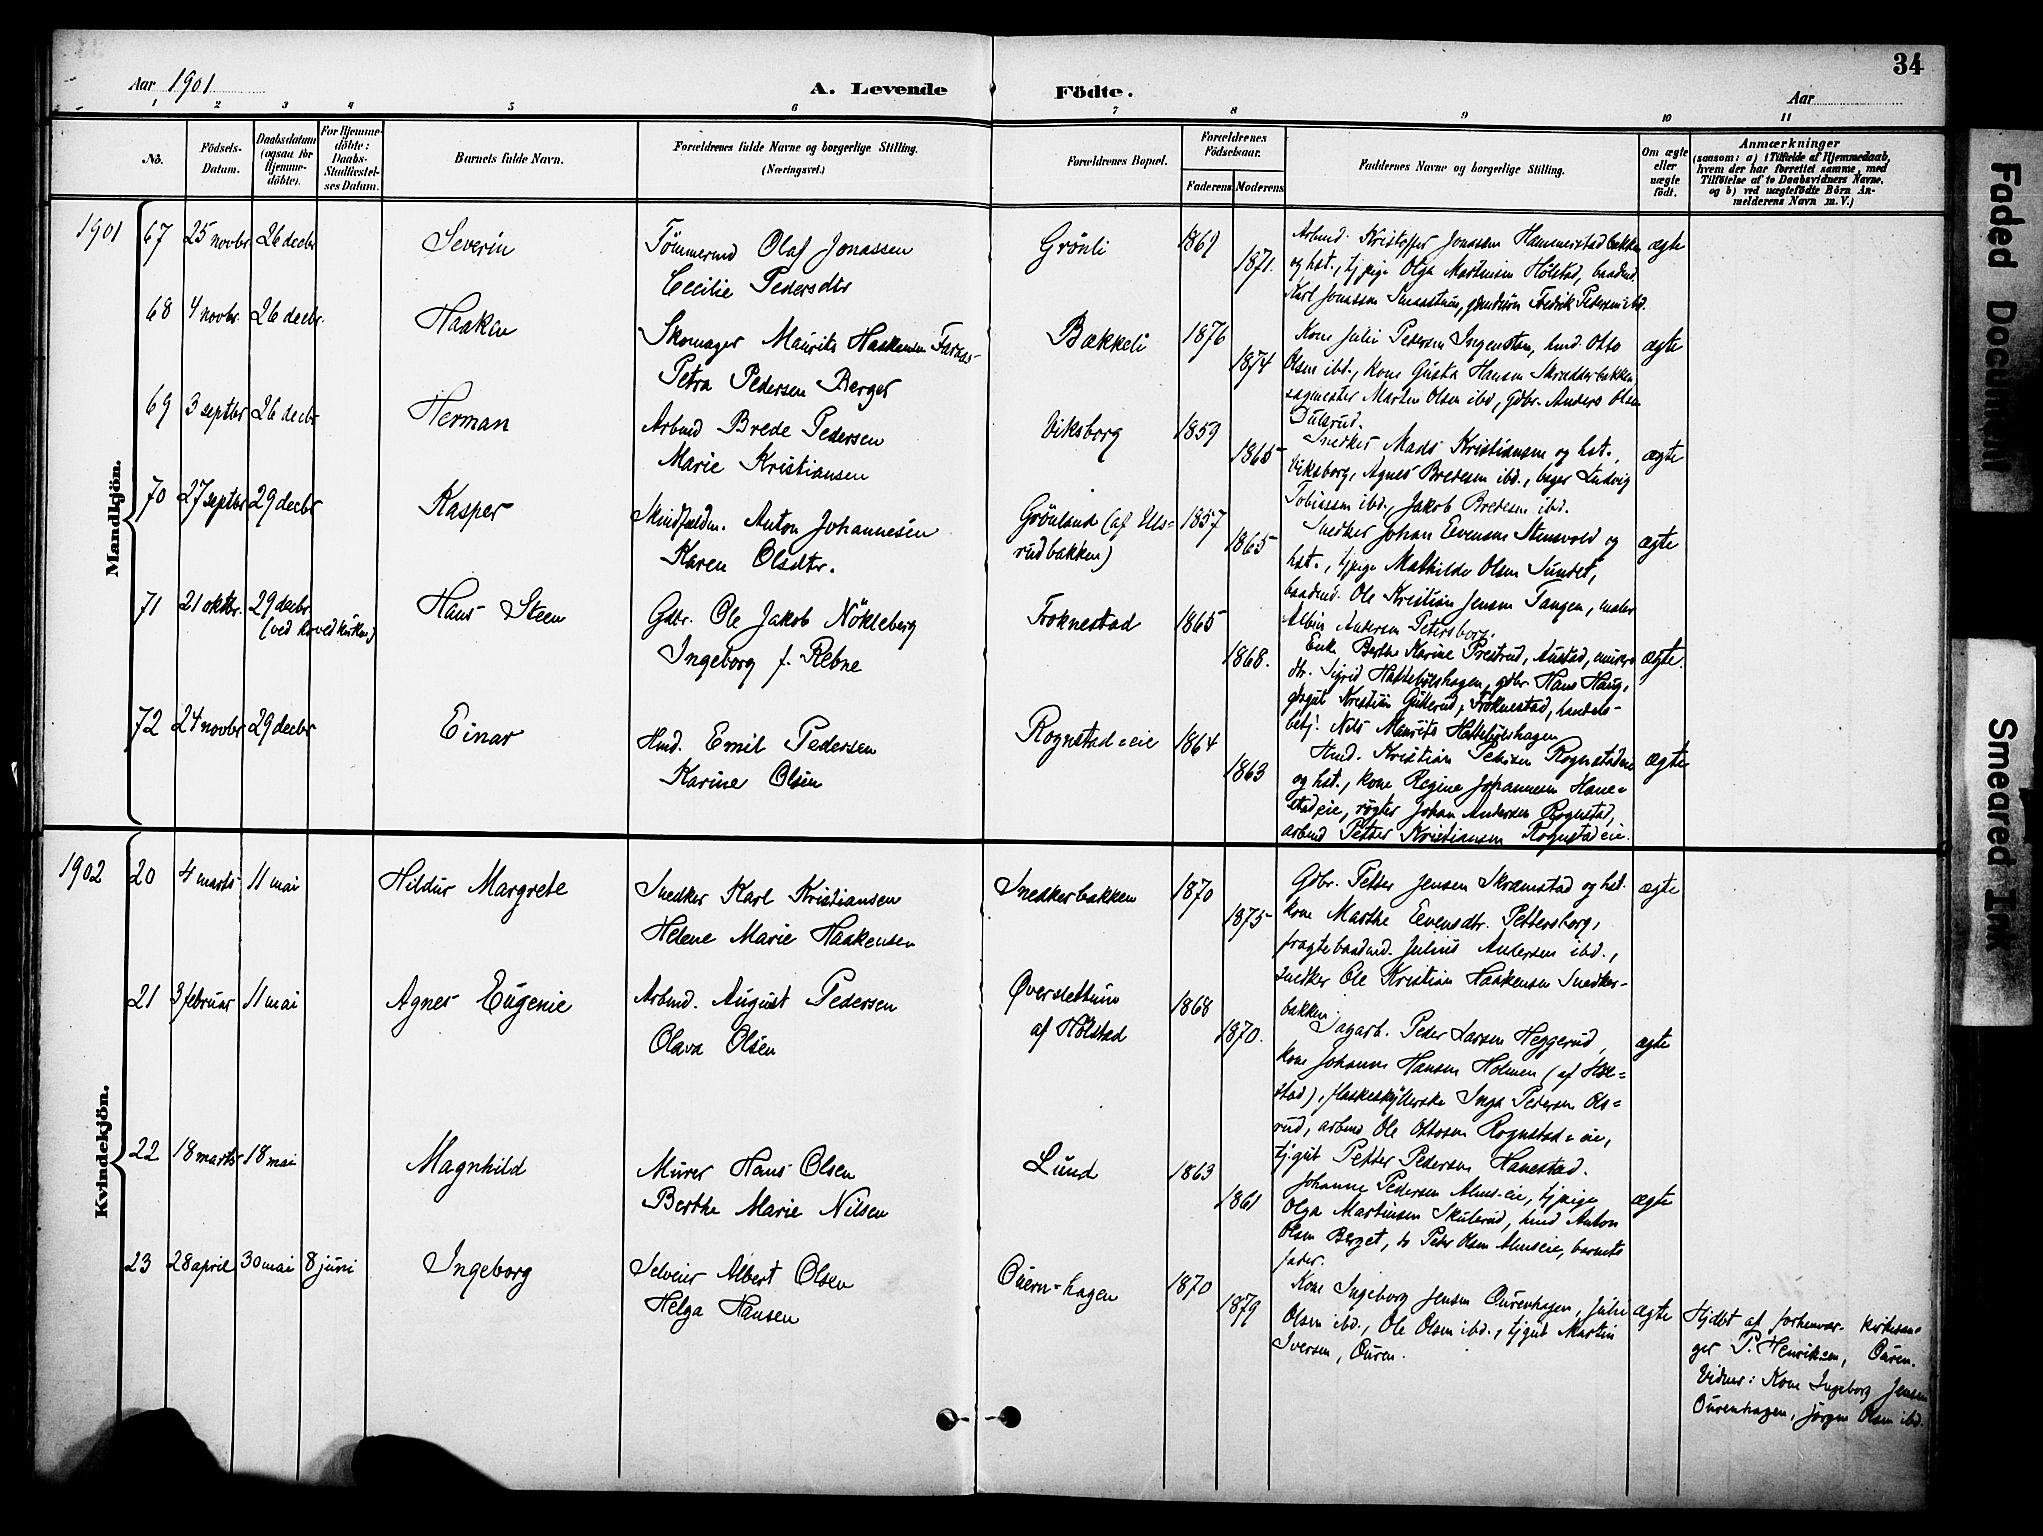 34
Aar 1901
A. Levende Födte.
Aar
1 2 3 4 5 6 7 8 9 10 11
No.
Födsels-Datum.
Daabsdatum (ogsaa for Hjemme-döbte).
For Hjemme-döbte: Daabs-Stadfæstel-ses Datum.
Barnets fulde Navn.
Forældrenes fulde Navne og borgerlige Stilling. (Næringsvei.)
Forældrenes Bopæl.
Forældrenes Födselsaar.
Faderens Moderens
Faddernes Navne og borgerlige Stilling.
Om ægte eller uægte födt.
Anmærkninger
(saasom: a) i Tilfælde af Hjemmedaab, hvem der har forrettet samme, med Tilföielse af to Daabsvidners Navne, og b) ved uægtefödte Börn An-melderens Navn m. V.)
Mandkjön.
1901 67 25 novbr 26 decbr Severin
Tømmermd Olaf Jonassen
Cecilie Pedersdtr
Grönli 1869 1871.
Arbmd. Kristoffer Jonassen Hammerstadbakken
og hst., tj.pige Olga Martinsen Hølstad, baadmd.
Karl Jonassen Smaastuen, gaardssøn Fredrik Pedersen ibd.
ægte
68 4 novbr. 26 decbr. Haakon
Skomager Maurits Haakensen Farnæs
Petra Pedersen Berger
Bakkeli 1876 1874
Kone Julie Pedersen Ingenstun, hmd. Otto
Olsen ibd., kone Gusta Hansen Skrædderbakken,
sagmester Marten Olsen ibd, Gdbr. Anders Olsen
Dulsrud.
ægte
69 3 septbr 26 decbr Herman
Arbmd Brede Pedersen
Marie Kristiansen
Viksborg 1859 1865
Snedker Mads Kristiansen og hst.,
Viksborg, Agnes Bredesen ibd., bager Ludvig
Tobiassen ibd, Jakob Bredesen ibd.
ægte
70 27 septbr 29 decbr Kasper
Skindfældm. Anton Johannesen
Karen Olsdtr.
Grönland (af Uls=
rudbakken)
1857 1865
Snedker Johan Evensen Stensvold og
hst., tj.pige Mathilde Olsen Sundet,
baadmd. Ole Kristian Jensen Tangen, maler
Albin Andersen Petersborg.
ægte
71 21 oktbr. 29 decbr. (ved hovedkirken) Hans Steen
Gdbr. Ole Jakob Nökleberg
Ingeborg f. Rebne
Froknestad 1865 1868.
Enke Berthe Karine Prestrud, Austad,
dtr. Sigrid Hattebölshagen, gdbr Hans Haug,
Kristian Gutterud, Froknestad, handels-
betj. Nils Maurits Hattebölshagen
ægte.
72 24 novbr 29 decbr Einar
Hmd. Emil Pedersen
Karine Olsen
Rognstad=eie 1864 1863
Hmd. Kristian Pedersen Rognstadeie
og hst., kone Regine Johannesen Hane=
stadeie, røgter Johan Andersen Rognstad,
arbmd Petter Kristiansen Rognstadeie.
ægte
Kvindekjön.
1902 20 4 marts 11 mai Hildur Margrete
Snedker Karl Kristiansen
Helene Marie Haakensen
Snedkerbakken 1870 1875
Gdbr. Petter Jensen Skramstad og hst.
kone Marthe Evensdtr. Pettersborg,
fragtebaadmd. Julius Andersen ibd.,
snedker Ole Kristian Haakensen Snedker-
bakken
ægte
21 3 februar 11 mai Agnes Eugenie
Arbmd. August Pedersen
Olava Olsen
Øverslettum
af Hölstad
1868 1870.
Dagarb. Peder Larsen Heggerud,
kone Johanne Hansen Holmen (af Höl=
stad), flaskeskyllerske Inga Pedersen Ols=
rud, arbmd Ole Ottosen Rognstad=eie,
tj.gut Petter Pedersen Hanestad.
ægte
22 18 marts 18 mai Magnhild
Murer Hans Olsen
Berthe Marie Nilsen
Lund 1863 1861
Johanne Pedersen Alms-eie, tj.pige
Olga Martinsen Skulerud, hmd Anton
Olsen Berget, do Peder Olsen Almseie, barnets
fader.
ægte
23 28 april 30 mai 8 juni Ingeborg
Selveier Albert Olsen
Helga Hansen
Ouern-hagen 1870 1879
Kone Ingeborg Jensen Ourenhagen, Julie
Olsen ibd., Ole Olsen ibd., tj.gut Martin
Iversen, Ouren.
ægte
Hjdbt af forhenvær. kirkesan=
ger P. Henriksen, Ouren.
Vidner: Kone Ingeborg Jensen
Ourenhagen, Jörgen Olsen ibd.
Faded Document
Smeared Ink